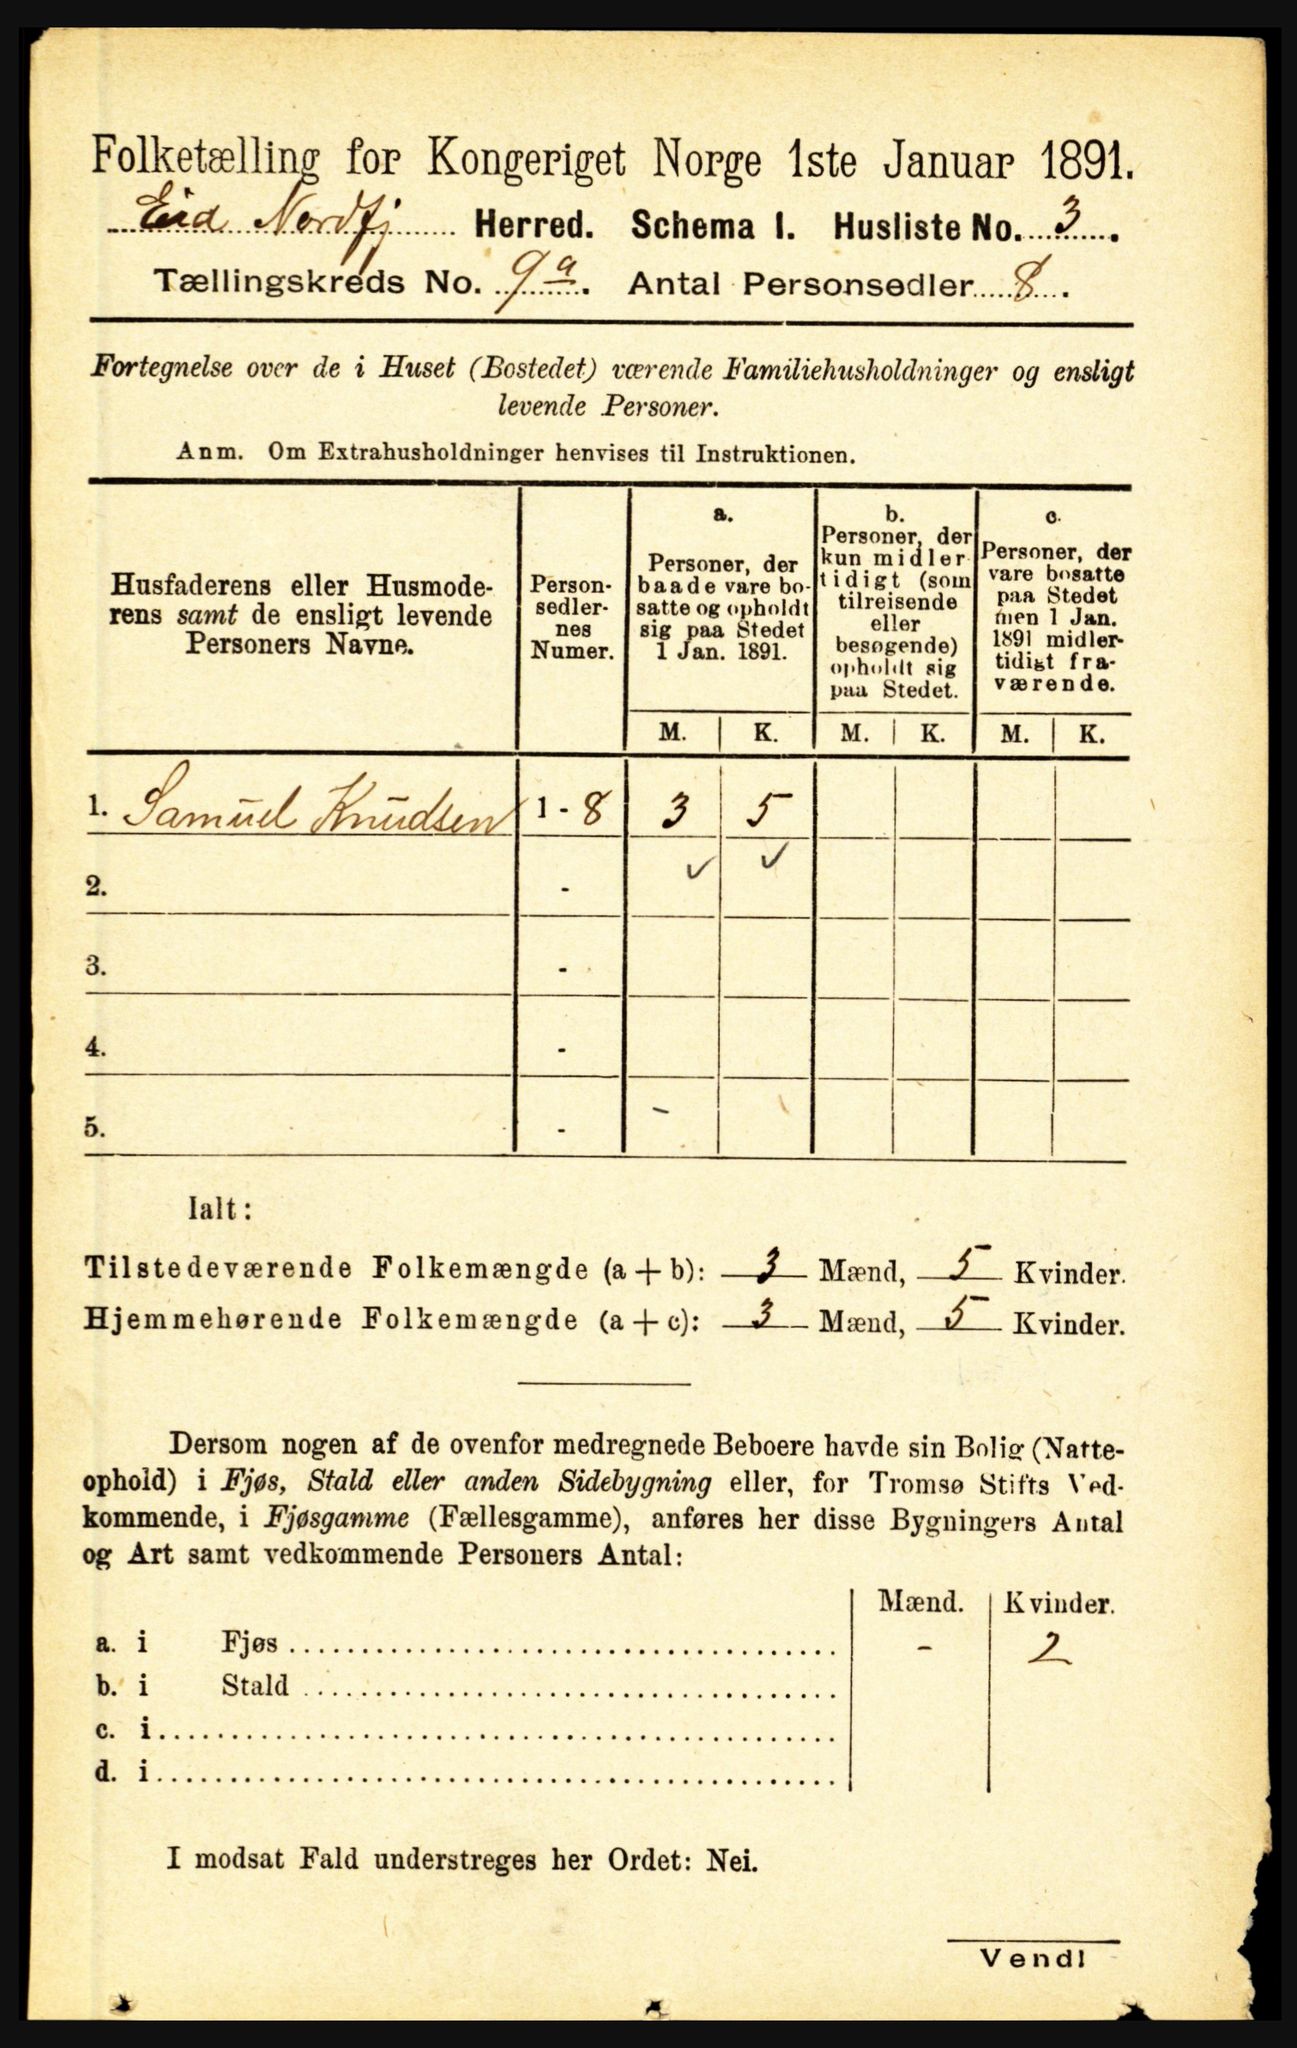 Folketælling for Kongeriget Norge 1ste Januar 1891.
Eid Nordfj Herred. Schema I. Husliste No. 3.
Tællingskreds No. 9a. Antal Personsedler 8.
Fortegnelse over de i Huset (Bostedet) værende Familiehusholdninger og ensligt
levende Personer.
Anm. Om Extrahusholdninger henvises til Instruktionen.
Husfaderens eller Husmode-
rens samt de ensligt levende
Personers Navne.
Person-
sedler-
nes
Numer.
a.
Personer, der
baade vare bo-
satte og opholdt
sig paa Stedet
1 Jan. 1891.
b.
Personer, der
kun midler-
tidigt (som
tilreisende
eller
besøgende)
opholdt sig
paa Stedet.
c.
Personer, der
vare bosatte
paa Stedet
men 1 Jan.
1891 midler-
tidigt fra-
værende.
M. K. M. K. M. K.
1. Samuel Knudsen 1 - 8 3 5
✓ ✓
2. -
3. -
4. -
5. - -
Ialt:
Tilstedeværende Folkemængde (a + b): 3 Mænd, 5 Kvinder.
Hjemmehørende Folkemængde (a + c): 3 Mænd, 5 Kvinder.
Dersom nogen af de ovenfor medregnede Beboere havde sin Bolig (Natte-
ophold) i Fjøs, Stald eller anden Sidebygning eller, for Tromsø Stifts Ved-
kommende, i Fjøsgamme (Fællesgamme), anføres her disse Bygningers Antal
og Art samt vedkommende Personers Antal:
Mænd. Kvinder.
a. i Fjøs - 2
b. i Stald
c. i
d. i
I modsat Fald understreges her Ordet: Nei.
Vend!